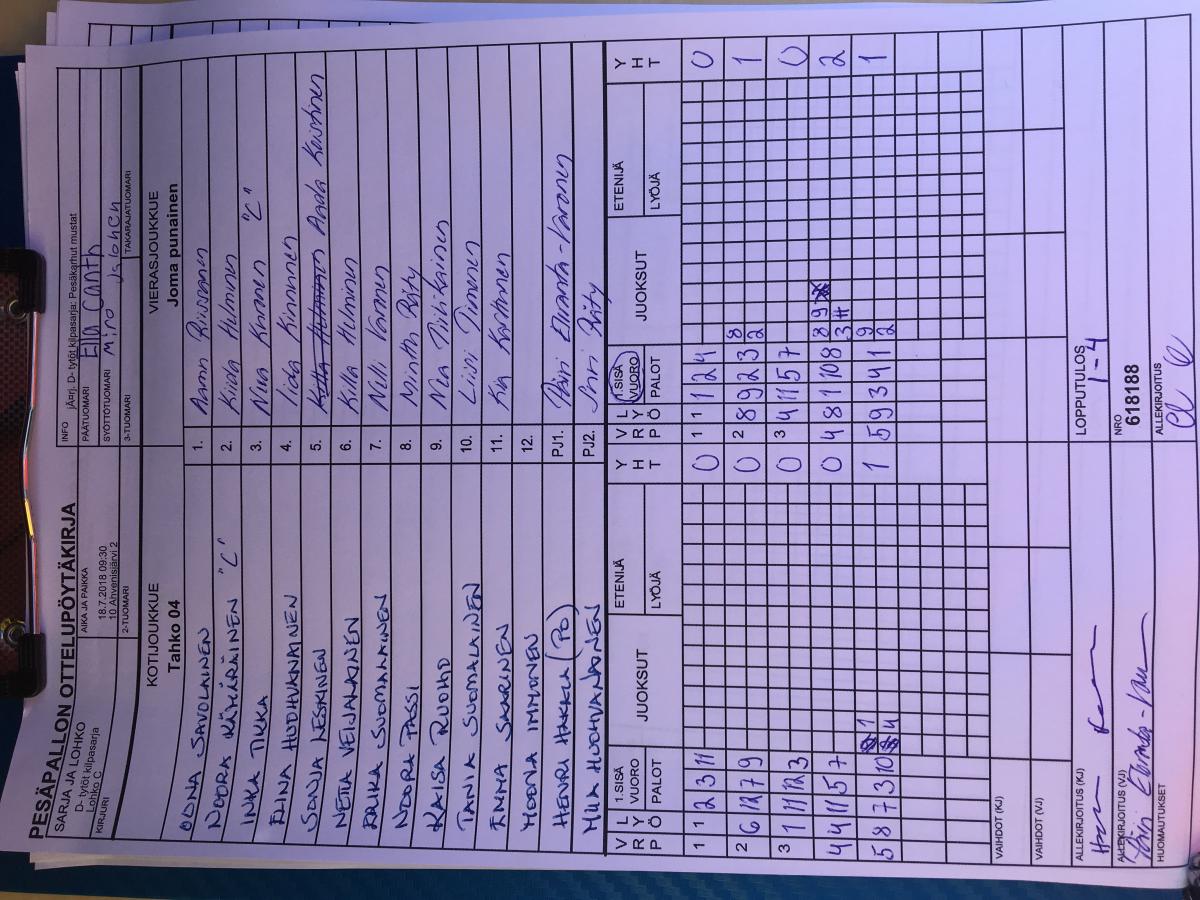 PESÄPALLON OTTELUPÖYTÄKIRJA
SARJA JA LOHKO
D- tytöt kilpasarja
Lohko C
KIRJURI
AIKA JA PAIKKA
18.7.2018 09:30
10 Ahvenisjärvi 2
2-TUOMARI
INFO jÃ¤rj. D- tytöt kilpasarja: Pesäkarhut mustat
PÄÄTUOMARI Ella Canth
SYÖTTÖTUOMARI Miro Jalonen
3-TUOMARI
TAKARAJATUOMARI
KOTIJOUKKUE
Tahko 04
VIERASJOUKKUE
Joma punainen
OONA SAVOLAINEN 1.
NOORA KÄMÄRÄINEN "C" 2. Kiida Hulminen
INKA TIKKA 3. "C"
ELINA HUOHVANAINEN 4. Kinnunen
SONJA LESKINEN 5. Aada Keistinen
NETTA VEIJALAINEN 6. Killa Hulminen
SUOMALAINEN 7. Nelli Varonen
NOORA PASSI 8. Minttu Räty
KAISA RUOHO 9. Nea Tiihikainen
TANIA SUOMALAINEN 10. Liiri Timonen
EMMA SAARINEN 11. Kia Karttunen
NOORA IMMONEN 12.
HENRI HAKKU (PO) PJ1. Päivi Elvanta-Varonen
MIIA HUOHVANAINEN PJ2. Räty
V R P
L Y Ö
1.SISÄ VUORO PALOT
JUOKSUT
ETENIJÄ
LYÖJÄ
Y H T
V R P
L Y Ö
1.SISÄ VUORO PALOT
JUOKSUT
ETENIJÄ
LYÖJÄ
Y H T
1 1 2 3 11 0 1 1 1 2 4 0
2 6 12 7 9 0 2 8 9 2 3 2 8 2 1
3 1 11 12 3 0 3 4 11 5 7 0
4 4 11 5 7 0 4 8 1 10 8 8 9 3 2
5 8 7 3 10 1 4 1 5 9 3 4 1 9 2 1
VAIHDOT (KJ)
VAIHDOT (VJ)
ALLEKIRJOITUS (KJ)
ALLEKIRJOITUS (VJ)
HUOMAUTUKSET
LOPPUTULOS
1-4
NRO
618188
ALLEKIRJOITUS